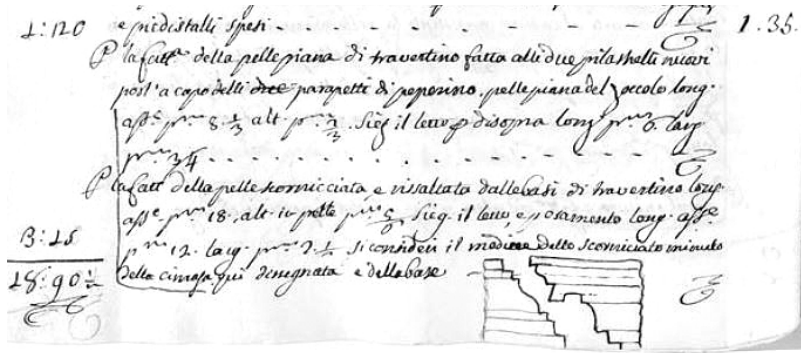 1:120 e piedistalli spesi 1.35.
P la fatt.ª della pelle piana di travertino fatta alli due pilastrelli nuovi
post'a capo delli due parapetti di peperino, pelle piana del zoccolo long.
ass.e p.mi 8 1/3 alt. p.mi 2/3. Sieg. il letto di sopra long. p.mi 6. larg.
p.mi 3/4
P la fatt.ª della pelle scorniciata e rissaltata dalle basi di travertino long.
ass.e p.mi 18. alt. in pelle p.mi Sieg. il letto, e posamento long. ass.e
3:15 p.mi 12. larg. p.mi 2 1/2 si consideri il mod.e detto scorniciato
18:90 1/2 della cimasa qui disegnata e della base